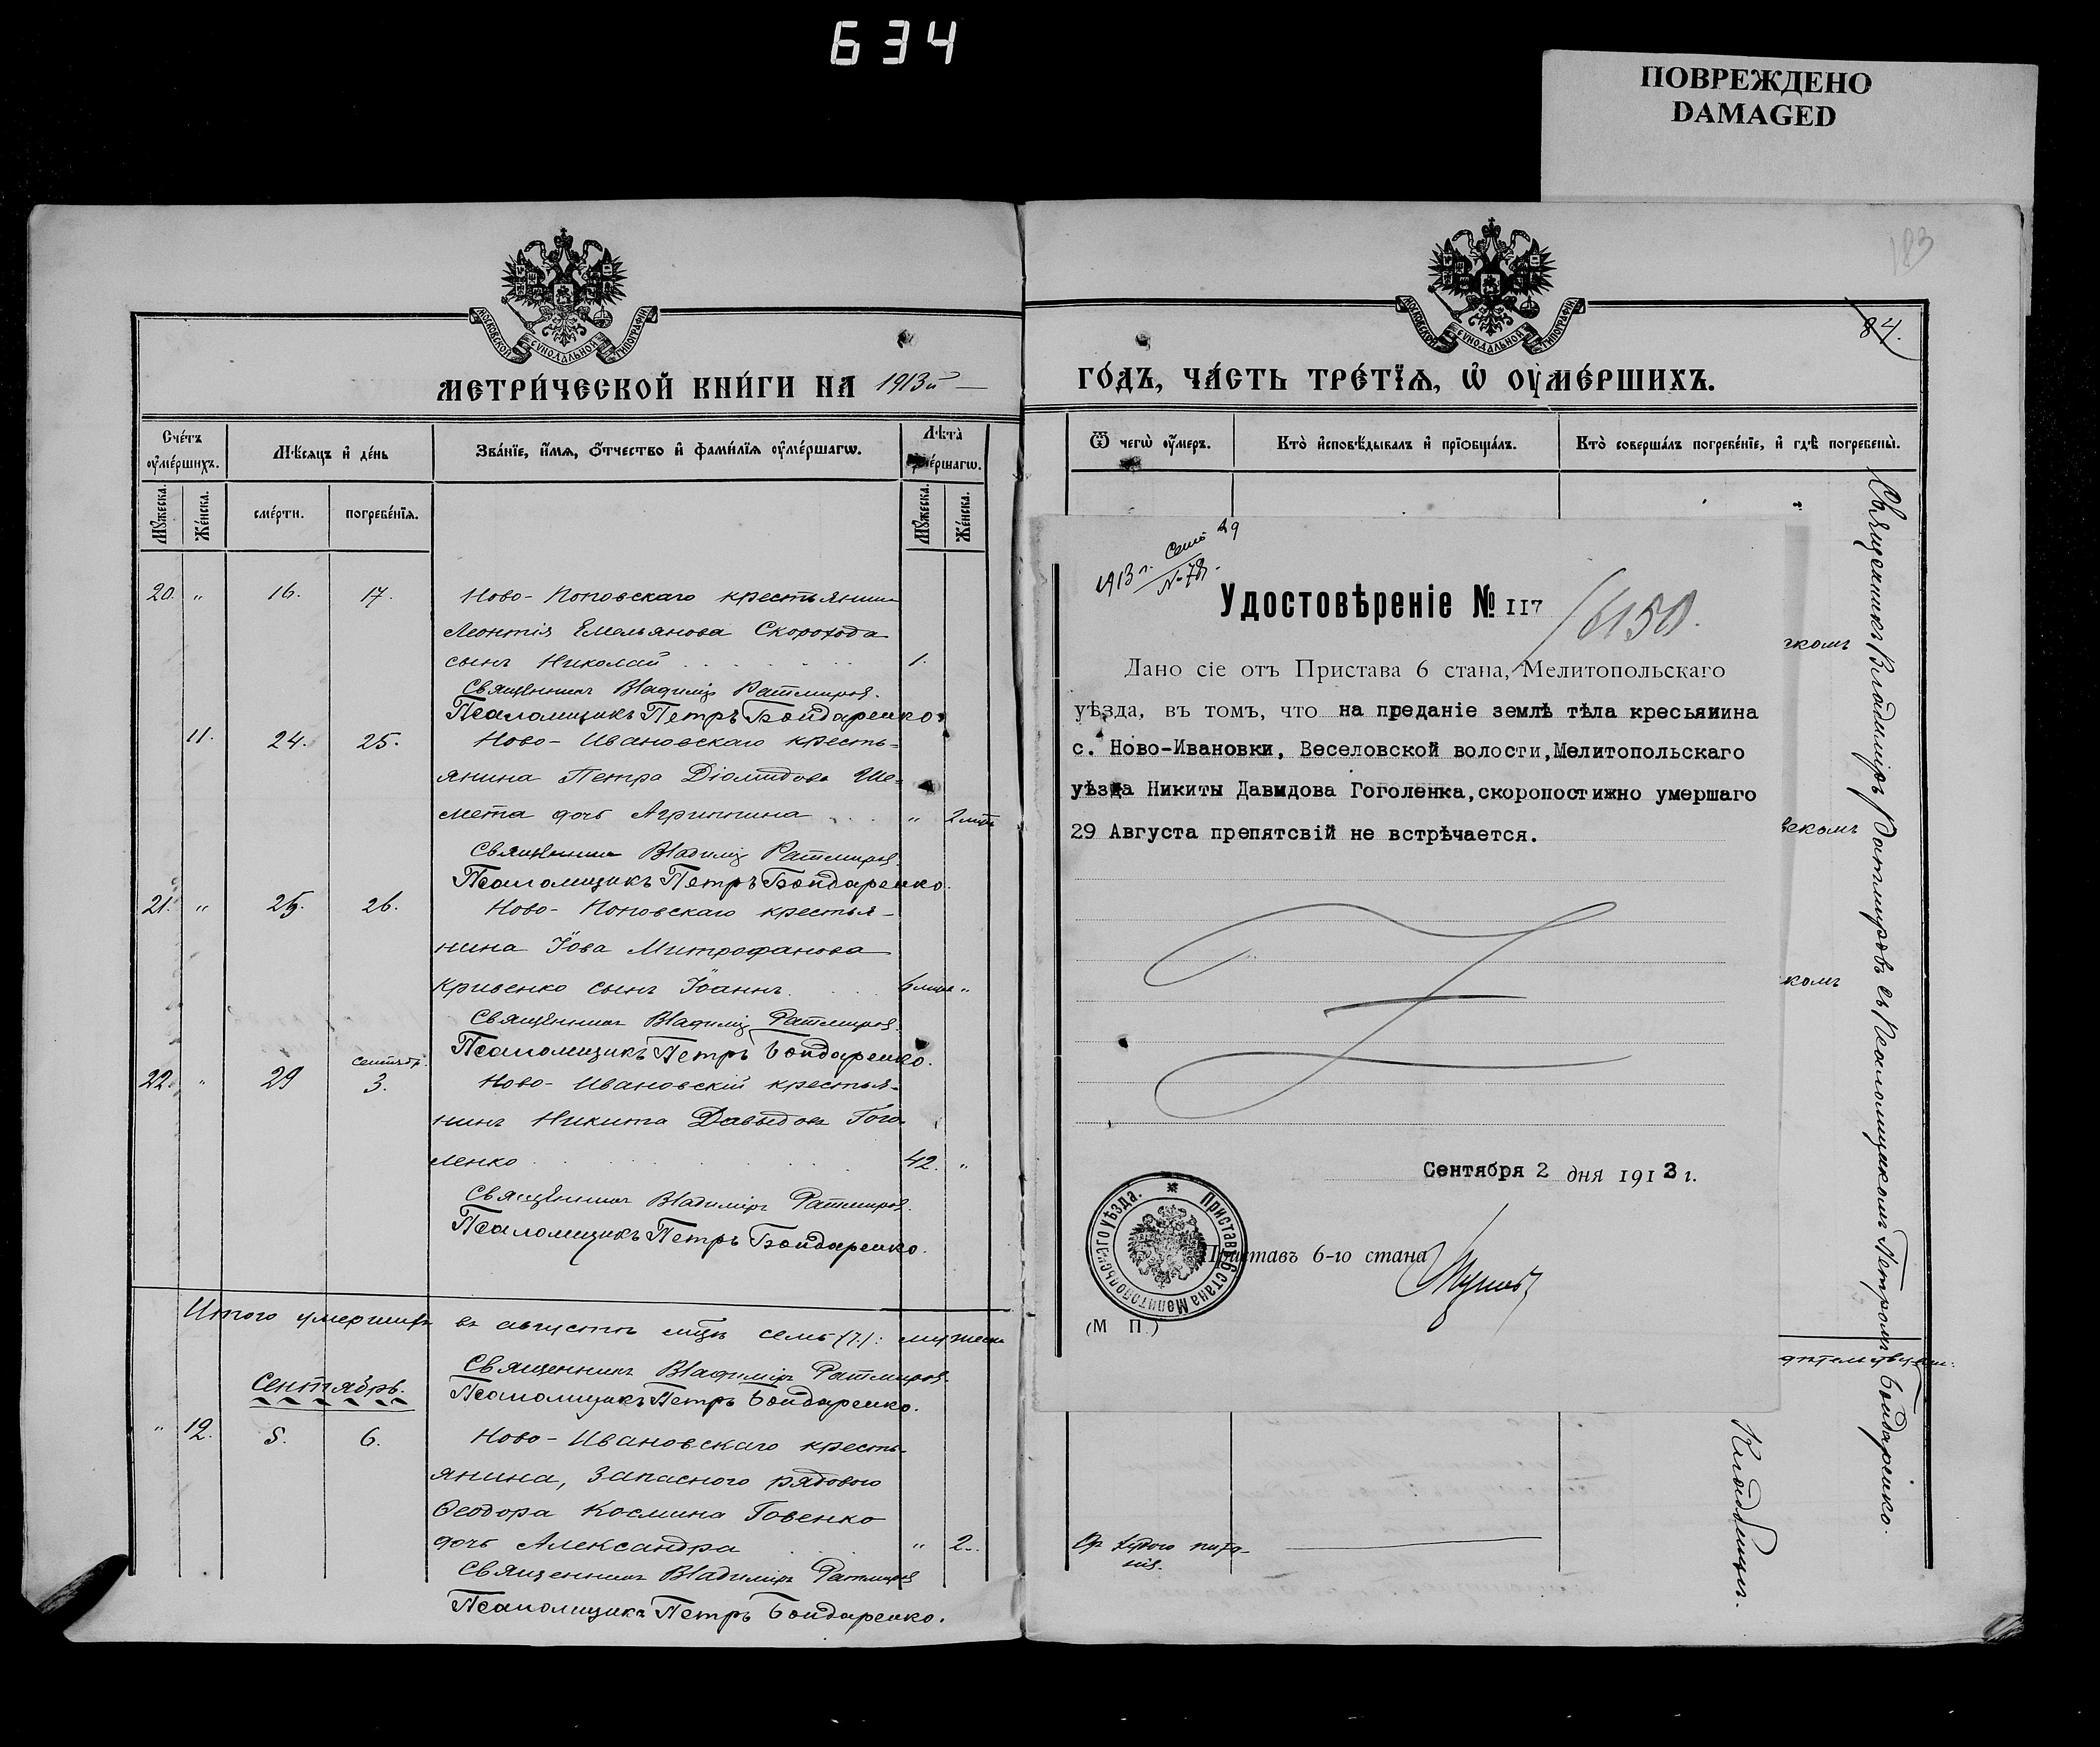 634
ПОВРЕЖДЕНО
DAMAGED
МОСКОВСКОЙ СѴНОДАЛЬНОЙ ТИПОГРАФІИ
МЕТРИ́ЧЕСКОЙ КНИ́ГИ НА 1913й
Сче́тъ ᲂу҆ме́ршихъ.
Мѣ́сяцъ и҆ де́нь
Зва́нїе, и҆́мѧ, ѻ҆́тчество и҆ фами́лїѧ ᲂу҆ме́ршагѡ.
Лѣ́та ᲂу҆ме́ршагѡ.
Мꙋ́жеска.
Же́нска.
сме́рти.
погребе́нїѧ.
Мꙋ́жеска.
Же́нска.
20. " 16. 17. Ново-Поповскаго крестьянина
Леонтія Емельянова Скорохода
сынъ Николай 1.
Священникъ Владиміръ Ратмировъ.
Псаломщикъ Петръ Бондаренко.
11. 24. 25. Ново-Ивановскаго кресть-
янина Петра Діомидова Ше-
мета дочь Агриппина " 2 мѣс
Священникъ Владиміръ Ратмировъ.
Псаломщикъ Петръ Бондаренко.
21. " 25. 26. Ново-Поповскаго крестья-
нина Іова Митрофанова
Кривенко сынъ Іоаннъ. 6 мѣс "
Священникъ Владиміръ Ратмировъ.
Псаломщикъ Петръ Бондаренко.
22. " 29 сентябр. 3. Ново-Ивановскій крестья-
нинъ Никита Давыдовъ Гого-
ленко 42. "
Священникъ Владиміръ Ратмировъ.
Псаломщикъ Петръ Бондаренко.
Итого умершихъ въ августѣ мцѣ семь (7): мужеска
Священникъ Владиміръ Ратмировъ.
Псаломщикъ Петръ Бондаренко.
Сентябрь.
" 12. 5. 6. Ново-Ивановскаго кресть-
янина, запасного рядового
Ѳеодора Космина Говенко
дочь Александра " 2.
Священникъ Владиміръ Ратмировъ
Псаломщикъ Петръ Бондаренко.
183
84.
МОСКОВСКОЙ СѴНОДАЛЬНОЙ ТИПОГРАФІИ
ГО́ДЪ, ЧА́СТЬ ТРЕ́ТЇѦ, Ѡ҆ ОУ҆МЕ́РШИХЪ.
Ѿ чегѡ̀ ᲂу҆́меръ.
Кто̀ и҆сповѣ́дывалъ и҆ прїѡбща́лъ.
Кто̀ соверша́лъ погребе́нїе, и҆ гдѣ̀ погребены̀.
1913 г. Сент 29
№ 78.
Удостовѣреніе № 117
/6150.
Дано сіе отъ Пристава 6 стана, Мелитопольскаго
уѣзда, въ томъ, что на преданіе землѣ тѣла кресьянина
с. Ново-Ивановки, Веселовской волости,Мелитопольскаго
уѣзда Никиты Давидова Гоголенка,скоропостижно умершаго
29 Августа препятсвій не встрѣчается.
Сентября 2 дня 1913 г.
Приставъ 6-го стана
Приставъ 6 стана Мелитопольскаго уѣзда.
(М П.)
Священникъ Владиміръ Ратмировъ съ Псаломщикомъ Петромъ Бондаренко.
Кладбищѣ.
комъ
От худого пита-
нія.